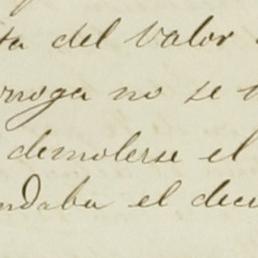 ta del valor
rroga no se
demolerse el
ndaba el dec